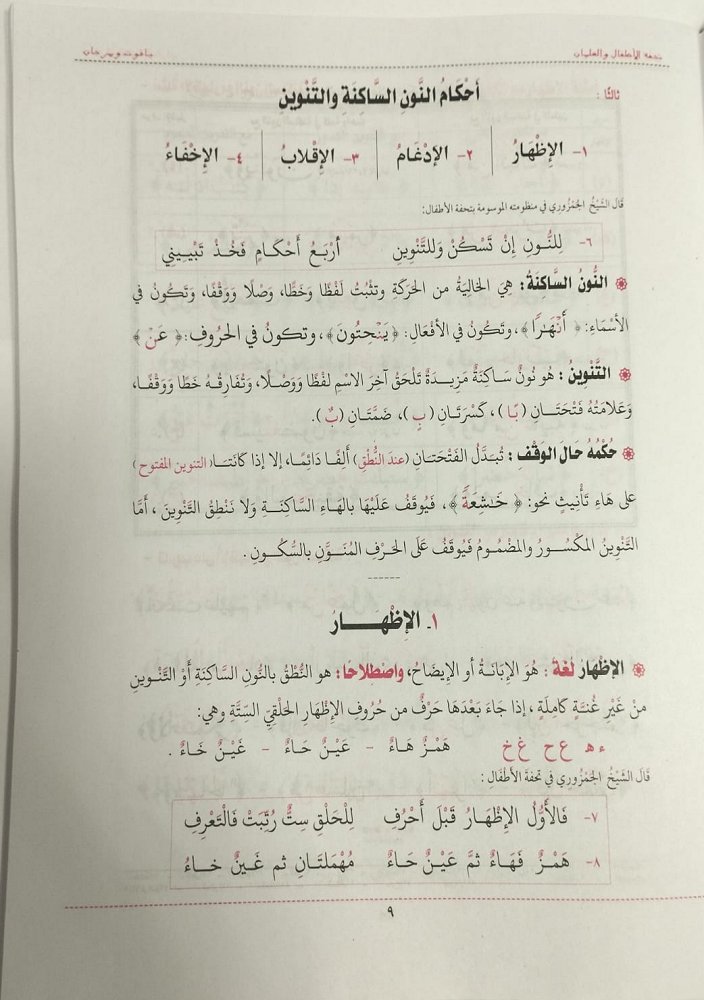 تحفة الأطفال والغلمان ياقوت ومرجان
ثالثًا : أَحْكَامُ النُّونِ السَّاكِنَةِ والتَّنْوِينِ
١- الإِظْهَارُ ٢- الإدْغَامُ ٣- الإِقْلَابُ ٤- الإِخْفَاءُ
قَالَ الشَّيْخُ الجَمْزُوري في منظومته الموسومة بتحفة الأطفال:
٦- لِلنُّـونِ إِنْ تَسْكُنْ وَلِلتَّنْوِينِ أَرْبَعُ أَحْكَامٍ فَخُذْ تَبْيِـينِي
النُّونُ السَّاكِنَةُ: هِيَ الخَالِيَةُ من الحَرَكَةِ وتثبُتُ لَفْظًا وَخَطًّا، وَصْلًا وَوَقْفًا، وَتَكُونُ في
الأَسْمَاءِ: ﴿ أَنْهَٰرًا ﴾، وتَكُونُ في الأفْعَالِ: ﴿ يَنْحِتُونَ ﴾، وتكونُ في الحُروفِ: ﴿ عَنْ ﴾
التَّنْوِينُ : هُو نُونٌ سَاكِنَةٌ مَزِيدَةٌ تَلْحَقُ آخِرَ الاسْمِ لَفْظًا وَوَصْلًا، وَتُفَارِقُهُ خَطًا وَوَقْفًا،
وَعَلامَتُهُ فَتْحَتَـانِ ( بًا )، كَسْرَتَانِ ( بٍ )، ضَمَّتَانِ ( بٌ ).
حُكْمُهُ حَالَ الوَقْفِ : تُبَدَّلُ الفَتْحَتـانِ (عندَ النُّطْقِ) أَلِفًا دَائمًا، إلا إذا كَانَتَـا (التنوين المفتوح)
على هَاءِ تَأْنِيثٍ نحو: ﴿ خَٰشِعَةً ﴾، فَيُوقَفُ عَلَيْهَا بالهَاءِ السَّاكِنَـةِ وَلَا نَنْطِقُ التَّنْوِينَ ، أَمَّا
التَّنْوِينُ المَكْسُورُ والمَضْمُومُ فَيُوقَفُ عَلَى الحَرْفِ المُنَـوَّنِ بالسُّكُونِ .
------
١ـ الإِظْهَـــارُ
الإِظْهَارُ لُغَةً : هُوَ الإِبَانَةُ أو الإِيضَاحُ، واصْطِلَاحًا : هو النُّطْقُ بالنُّونِ السَّاكنَةِ أَوْ التَّنْوِينِ
مِنْ غَيْرِ غُنـَّةٍ كامِلَةٍ ، إذا جَاءَ بَعْدَهَا حَرْفٌ من حُروفِ الإِظْهَارِ الحَلْقِيِّ السِّتَّةِ وهي:
ء هـ ع ح غ خ هَمْزٌ هَاءٌ - عَيْنٌ حَاءٌ - غَيْنٌ خَاءٌ .
قَالَ الشَّيْخُ الجَمْزُوري في تحفة الأطْفَالِ :
٧- فَالأَوَّلُ الإِظْهَارُ قَبْلَ أَحْرُفِ لِلْحَلْقِ سِتٌّ رُتِّبَتْ فَالْتَعْرِفِ
٨- هَمْزٌ فَهَاءٌ ثمَّ عَيْنٌ حَاءُ مُهْمَلَتَانِ ثم غَـينٌ خـاءُ
٩